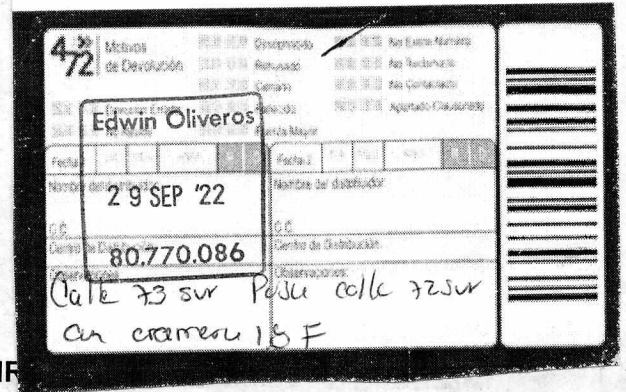 4-72 Motivos de Devolución
Desconocido
No Existe Número
Rehusado
No Reclamado
Cerrado
No Contactado
Fallecido
Apartado Clausurado
Fuerza Mayor
Edwin Oliveros
Fecha 2
Nombre del distribuidor
Nombre del distribuidor
29 SEP '22
C.C.
C.C.
Centro de Distribución
Centro de Distribución
80.770.086
Observaciones
Observaciones:
Calle 73 sur Pasa calle 72 sur